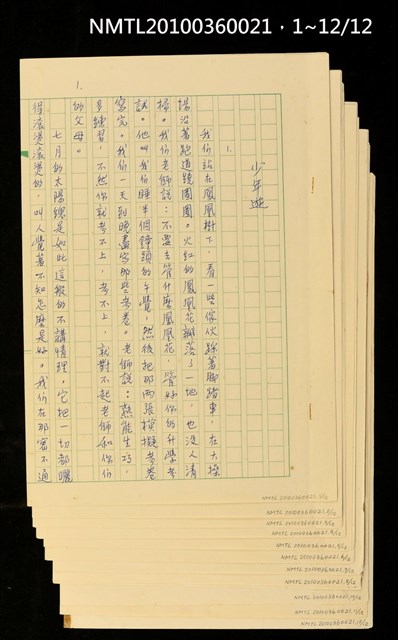 NMTL20100360021，1~12/12
1.
少年遊
1.
我们站在鳳凰樹下，看一些傢伙踩著腳踏車，在大操
場沿著跑道繞圈圈。火紅的鳳凰花瓣落了一地，也沒人清
掃。我们老師說：不要去管什麼鳳凰花，管好你的升學考
試。他叫我们睡半個鐘頭的午覺，然後把那兩張模擬考卷
寫完。我们一天到晚盡寫那些考卷。老師說：熟能生巧，
多練習，不然你就考不上，考不上，就對不起老師和你们
的父母。
七月的太陽總是如此這般的不講情理。它把一切都曬
得滾燙滾燙的，叫人覺著不知怎麼是好。我们在那密不通
NMTL20100360021,2/12
NMTL20100360021,3/12
NMTL20100360021,4/12
NMTL20100360021,5/12
NMTL20100360021,6/12
NMTL20100360021,8/12
NMTL20100360021,9/12
NMTL20100360021,10/12
NMTL20100360021,11/12
NMTL20100360021,12/12